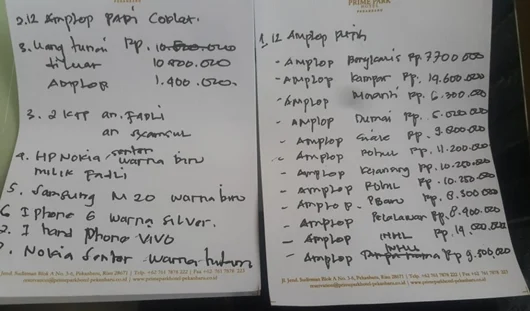 2. 12 Amplop PAPI Coblat.
3. Uang tunai Rp. 10.800.000
diluar 10.800.000
Amplop 1.400.000.
3. 2 KTP an. FADLI
an
4. HP Nokia/senter warna biru
milik FADLI
5. Samsung M 20 warna biru
6 I phone 6 warna silver.
7. 1 hand phone VIVO
Nokia Senter warna hitam
Jend. Sudirman Blok A No. 3-6, Pekanbaru, Riau 28671 | Telp +62 761 7878 222 | Fax +62 761 7878 223
reservation@primeparkhotel-pekanbaru.co.id
PRIME PARK
HOTEL
PEKANBARU
1. 12 Amplop putih
- AMPLOP Bengkalis Rp. 7700.000
- AMPLOP Kampar Rp. 19.600.000
- AMPLOP Meranti Rp. 6.300.000
- AMPLOP Dumai Rp. 5.020.000
- AMPLOP Siak Rp. 9.800.000
- AMPLOP Rohul Rp. 11.200.000
- AMPLOP Kuansing Rp. 10.250.000
- AMPLOP Rohil Rp. 10.250.000
- AMPLOP P.Baru Rp. 8.300.000
- AMPLOP Pelalawan Rp. 8.400.000
- AMPLOP INHIL Rp. 14.000.000
- AMPLOP INHU Rp 9.500.000
Jl. Jend. Sudirman Blok A No. 3-6, Pekanbaru, Riau 28671 | Telp +62 761 7878 222 | Fax +62 761 7878 223
reservation@primeparkhotel-pekanbaru.co.id